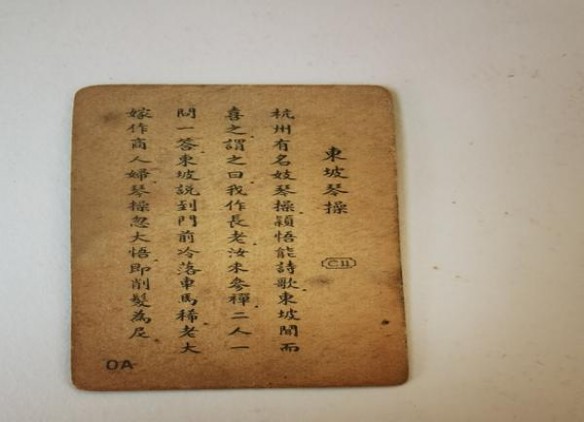 東坡琴操
杭州有名妓琴操穎悟能詩歌東坡聞而
喜之謂之曰我作長老汝來參禪二人一
問一答東坡説到門前冷落車馬稀老大
嫁作商人婦琴操忽大悟即削髮為尼
CU
OA